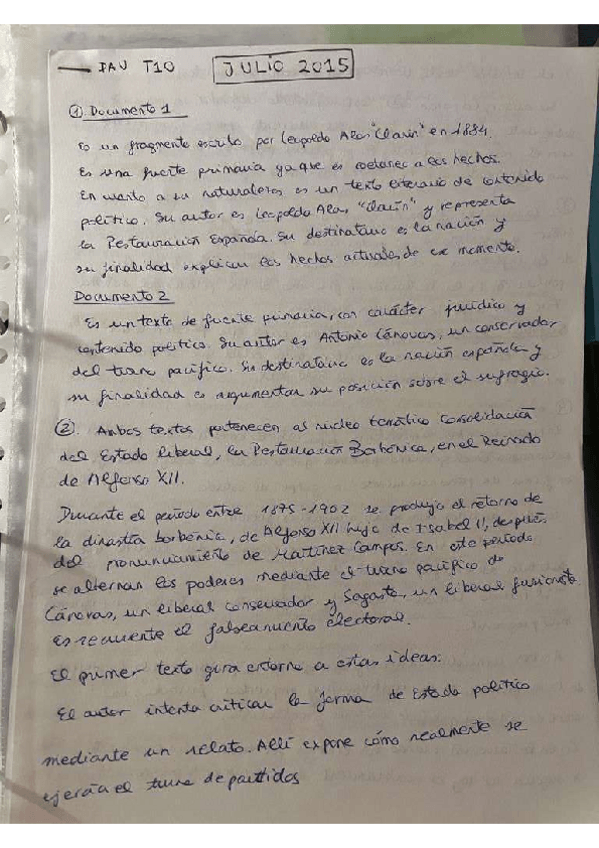 — PAU T10 JULIO 2015
① Documento 1
Es un fragmento escrito por Leopoldo Alas "Clarín" en 1884.
Es una fuente primaria ya que es coetaneo a los hechos.
En cuanto a su naturaleza es un texto literario de contenido
político. Su autor es Leopoldo Alas "Clarín" y representa
la Restauración Española. Su destinatario es la nación y
su finalidad explicar los hechos actuales de ese momento.
Documento 2
Es un texto de fuente primaria, con carácter jurídico y
contenido político. Su autor es Antonio Cánovas, un conservador
del turno pacífico. Su destinatario es la nación española y
su finalidad es argumentar su posición sobre el sufragio.
② Ambos textos pertenecen al núcleo temático Consolidación
del Estado liberal, la Restauración Borbónica, en el Reinado
de Alfonso XII.
Durante el período entre 1875-1902 se produjo el retorno de
la dinastía borbónica, de Alfonso XII hijo de Isabel II, después
del pronunciamiento de Martínez Campos. En este período
se alternan los poderes mediante el turno pacífico de
Cánovas, un liberal conservador y Sagasta, un liberal fusionista.
Es recuente el falseamiento electoral.
El primer texto gira entorno a estas ideas:
El autor intenta criticar la forma de Estado político
mediante un relato. Allí expone cómo realmente se
ejercía el turno de partidos